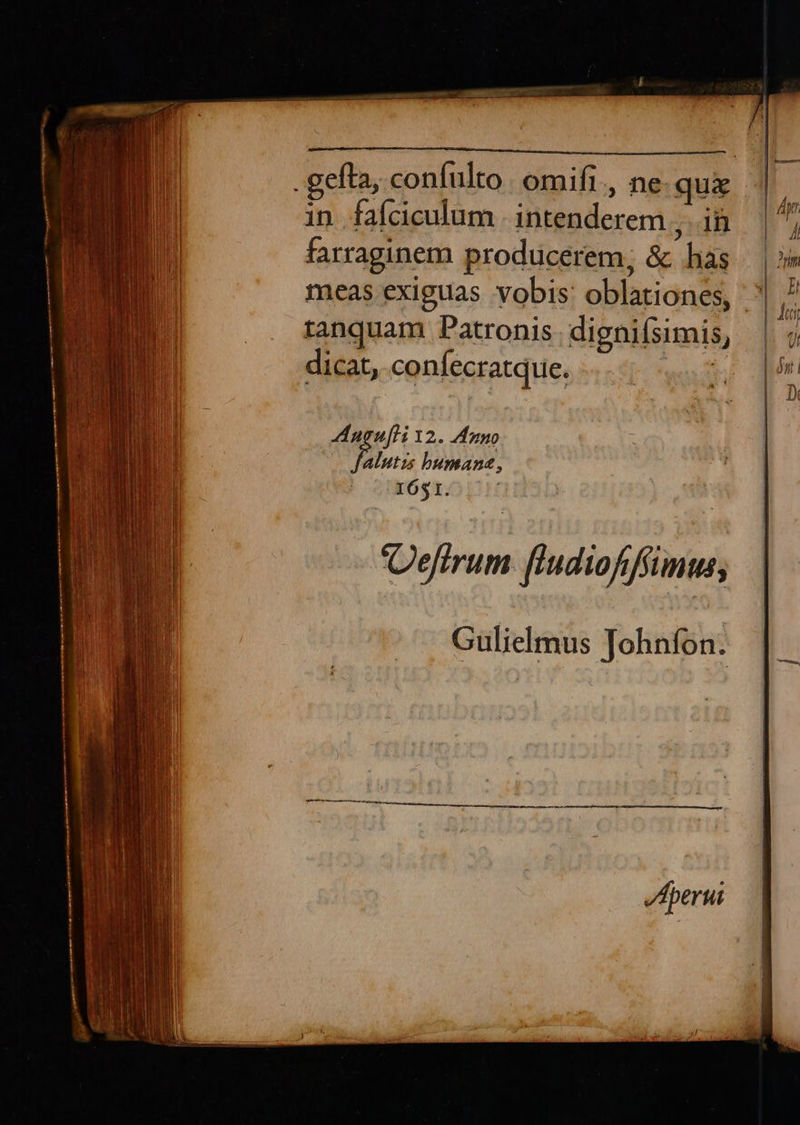 geſta, conſulto omiſi, ne quæ
in faſciculum intenderem, in
farraginem producerem, & has
meas exiguas vobis oblationes,
tanquam Patronis digniſsimis,
dicat, conſecratque.
Auguſti 12. Anno
ſalutis humanæ,
1651.
Veſtrum ſtudioſiſſimus,
Gulielmus Johnſon.
Aperui